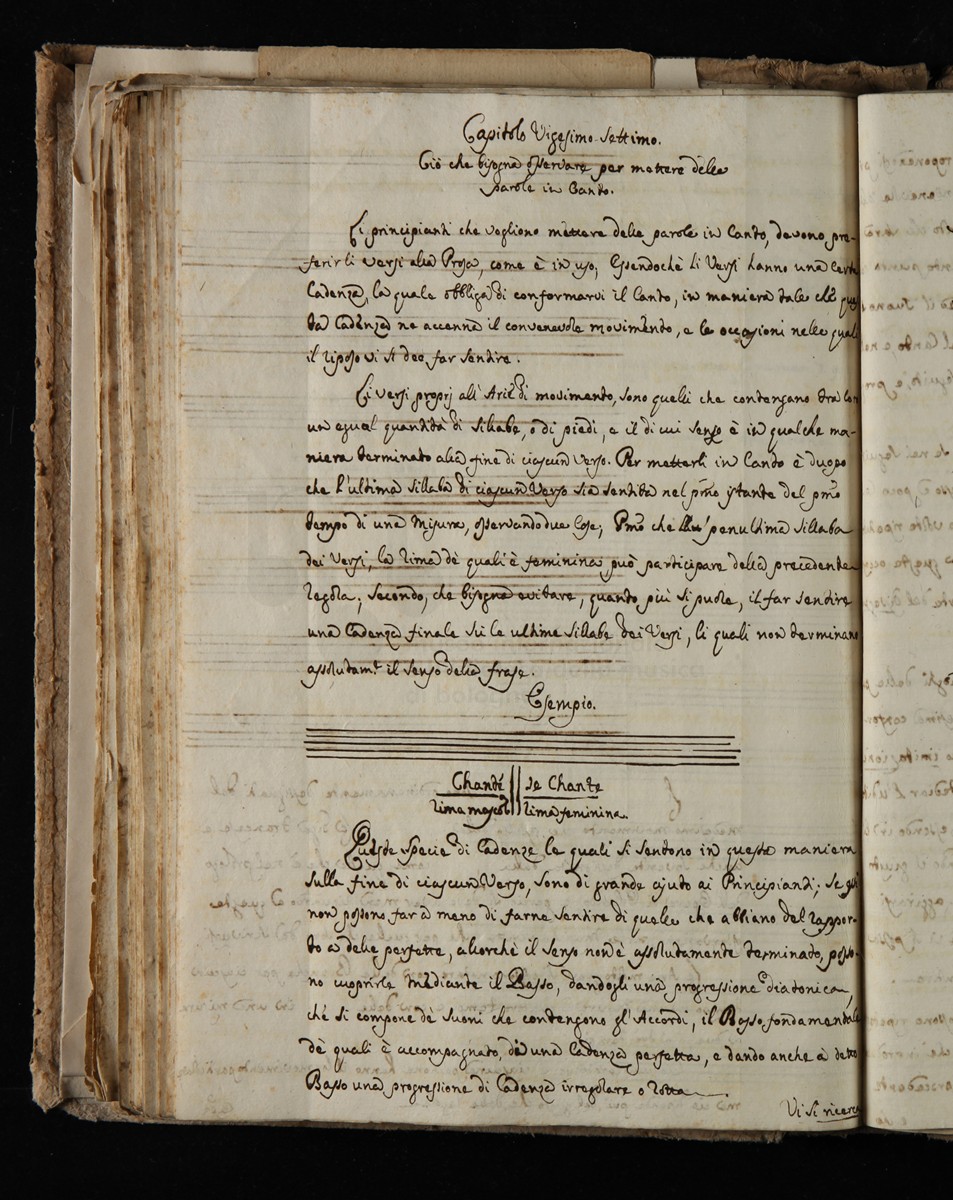 Capitolo Vigesimo Settimo.
Ciò che bisogna osservare per mettere delle
parole in Canto.
Li principianti che vogliono mettere delle parole in Canto, devono pre-
ferir li versi alla Prosa, come è in uso; Essendochè li Versi hanno una certa
Cadenza, la quale obbliga di conformarvi il Canto, in maniera tale che
ta Cadenza ne accenna il convenevole movimento, e le occasioni nelle quali
il riposo vi si dee far sentire.
Li versi proprj all' Arie di movimento, sono quelli che contengano tra
un egual quantità di Sillabe, o di piedi, e il di cui Senso è in qualche ma-
niera terminato alla fine di ciascun verso. Per metterli in Canto è duopo
che l'ultima sillaba di ciascun Verso sia sentita nel pmo istante del pmo
tempo di una Misura, osservando due Cose; Pmo che penultima Sillaba
dei Versi, la rima dè quali è feminina può participare della precedente
regola; Secondo, che bisogna evitare, quanto più si puole, il far sentire
una Cadenza finale su le ultime Sillabe dei Versi, li quali non terminano
assolutamte il Senso della frase.
Esempio.
Chanté || se Chante
rima mascol || rima feminina.
Queste Specie di Cadenze le quali si sentono in questa maniera
sulla fine di ciascun Verso, sono di grande ajuto ai Principianti; Se
non possono far a meno di farne sentire di quelle che abbiano del rappor-
to a delle perfette, allorchè il Senso non è assolutamente terminato, posso-
no cuoprirle mediante il Basso, dandogli una progressione diatonica,
chè si compone dè suoni che contengono gl' Accordi, il Basso fondamentale
dè quali è accompagnato, di una Cadenza perfetta, e dando anche a detto
Basso una progressione di Cadenza irregolare o rotta.
Vi si ricerc